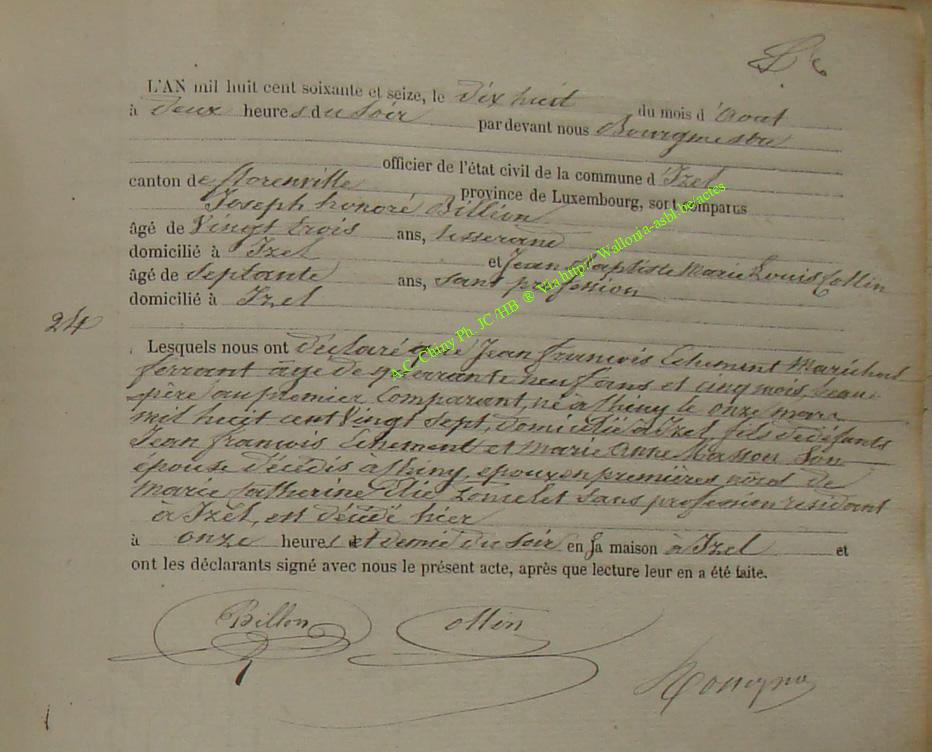 L'AN mil huit cent soixante et seize, le dix huit du mois d'Aout
à deux heures du Soir par devant nous Bourgmestre
officier de l'état civil de la commune d'Izel
canton de florenville province de Luxembourg, sont comparus
Joseph honoré Billion
âgé de Vingt trois ans, tisserand
domicilié à Izel et Jean Baptiste Marie Louis Collin
âgé de Septante ans, sans profession
domicilié à Izel
24
Lesquels nous ont déclaré que Jean francois Echement Marichal
ferrant âgé de quarante neuf ans et cinq mois, beau
père au premier Comparant, né à thiny le onze mars
mil huit cent Vingt Sept, domicilié à izel, fils de défunts
Jean francois Echement et Marie Anne Masson Son
épouse décédés à thiny, époux en premières noces de
Marie Catherine Elie Lomelet Sans profession residant
à Izel, est décédé hier
à onze heures et demie du Soir en Sa maison à Izel et
ont les déclarants signé avec nous le présent acte, après que lecture leur en a été faite.
Billon Collin
A.C. Chiny Ph. JC /HB ® Via http://Wallonia-asbl.be/actes